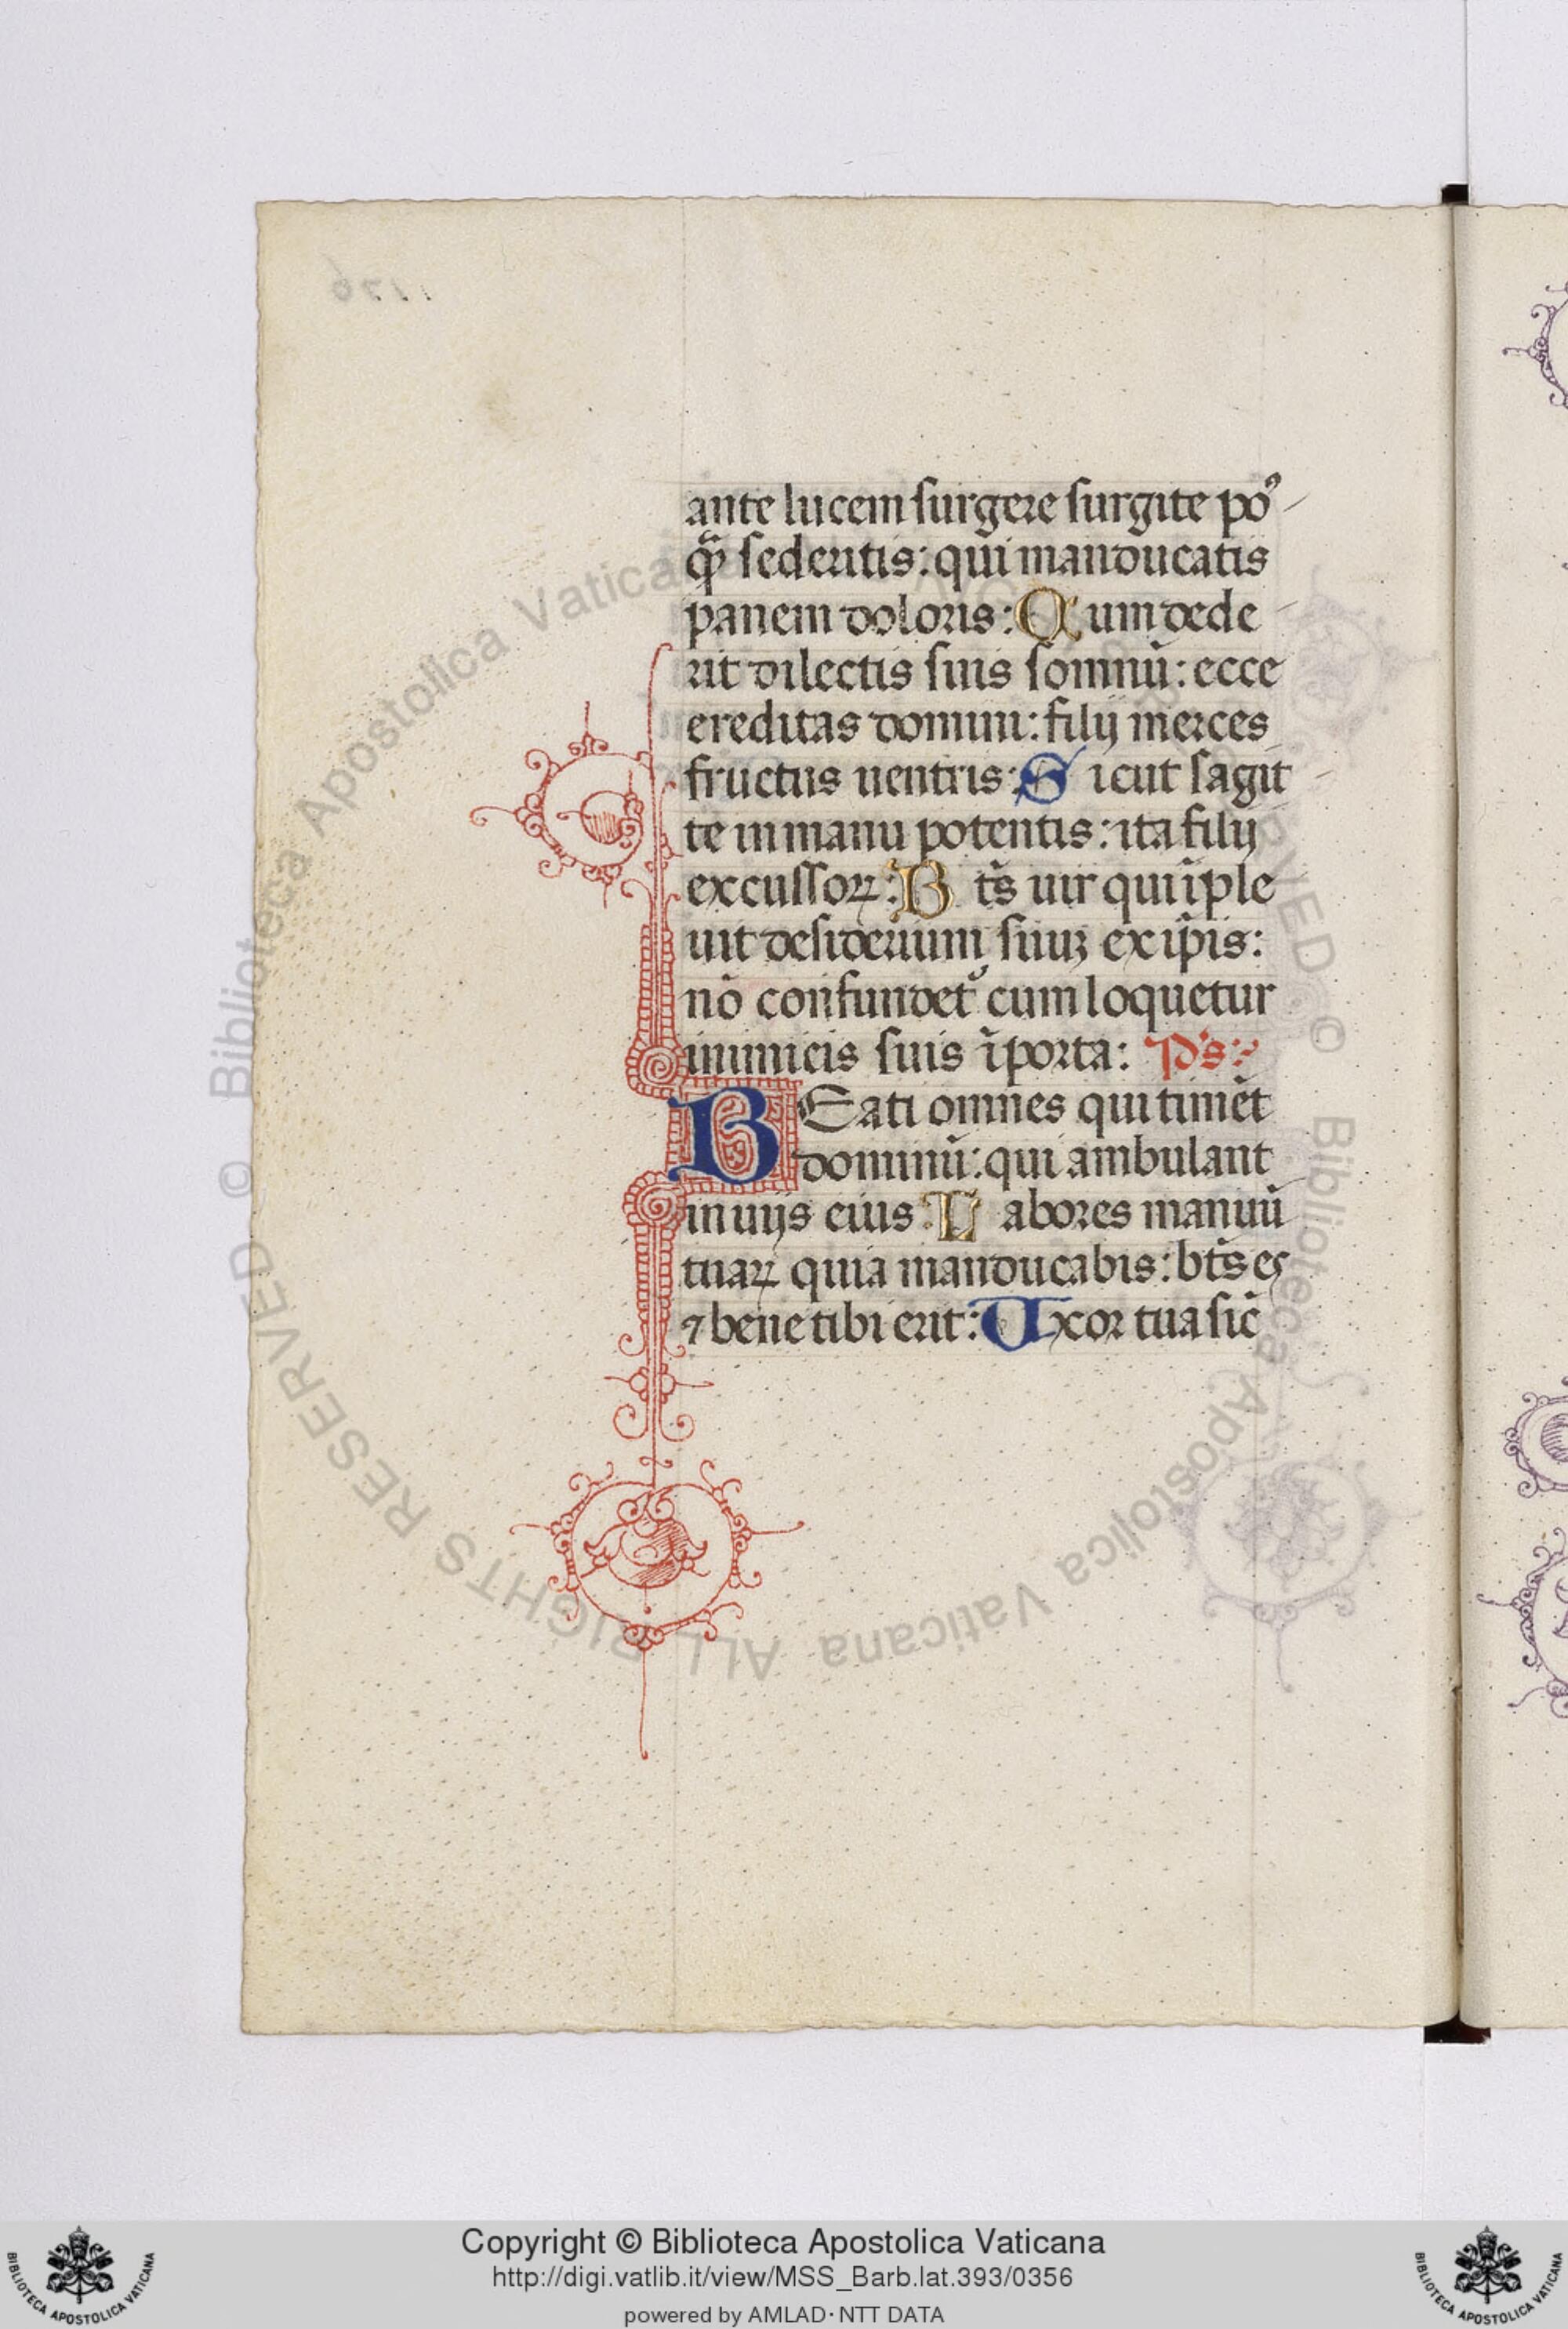 ante lucem surgere surgite poꝰ
qͣꝫ sederitis: qui manducatis
panem doloris: Cum dede
rit dilectis suis somnū: ecce
ereditas domini: filij merces
fructus uentris: Sicut sagit
te in manu potentis: ita filij
excussoꝝ: Bt̄s uir qui īple
uit desiderium suuꝫ ex ip̄is:
nō confundet᷑ cum loquetur
inimicis suis ī porta: Ps:
BEati omnes qui timēt
dominū: qui ambulant
in uijs eius: Labores manuū
tuaꝝ quia manducabis: bt̄s es
⁊ bene tibi erit: Uxor tua sic̄
Copyright © Biblioteca Apostolica Vaticana
http://digi.vatlib.it/view/MSS_Barb.lat.393/0356
powered by AMLAD·NTT DATA
BIBLIOTECA APOSTOLICA VATICANA
BIBLIOTECA APOSTOLICA VATICANA
© Biblioteca Apostolica Vaticana
© Biblioteca Apostolica Vaticana ALL RIGHTS RESERVED